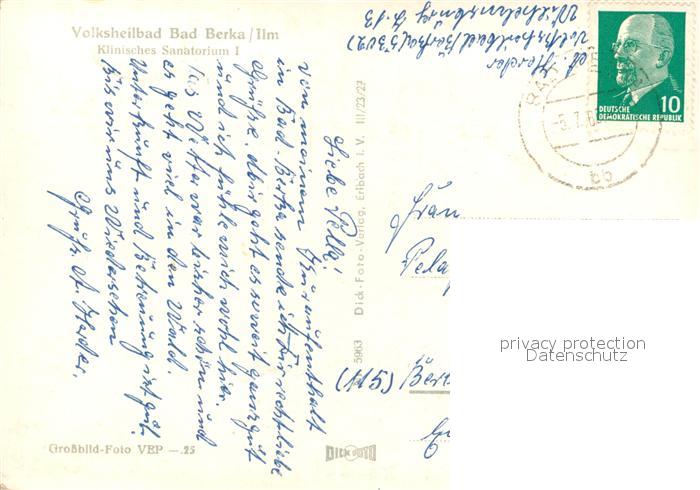 Volksheilbad Bad Berka/Ilm
Klinisches Sanatorium I
A. Herder
Volksheilbad Berka (5302)
Wilhelmsburg Z. 13
DEUTSCHE
DEMOKRATISCHE REPUBLIK
10
BAD
-5.7.6
bb
Liebe Pella!
Von meinem Kuraufenthalt
im Bad Berka sende ich Dir recht liebe
Grüße. Mir geht es soweit ganz gut
und ich fühle mich wohl hier.
Das Wetter war bisher schön und
es geht viel in den Wald.
Unterkunft und Betreuung ist gut.
Bis wir uns Wiedersehen
Grüße A. Herder.
5963 Dick-Foto-Verlag, Erlbach i. V. III/23/27
Frau
Pela
(115) Ber
privacy protection
Datenschutz
Großbild-Foto VEP —.25
DICK FOTO